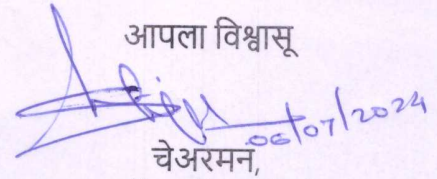 आपला विश्वासू
06/07/2024
चेअरमन,